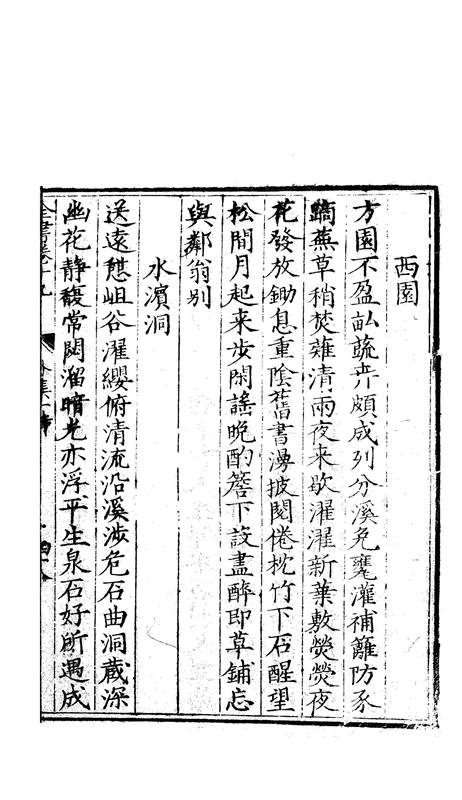 西園
方園不盈畝蔬卉頗成列分溪免甕灌補籬防豕
蹢蕪草稍焚薙清雨夜来歇濯濯新葉敷熒熒夜
花發放鋤息重陰舊書漫披閱倦枕竹下石醒望
松間月起来步閑謡晩酌簷下設盡醉即草鋪忘
與鄰翁别
水濵洞
送遠憇岨谷濯纓俯清流沿溪涉危石曲洞藏深
幽花静馥常閟溜暗光亦浮平生泉石好所遇成